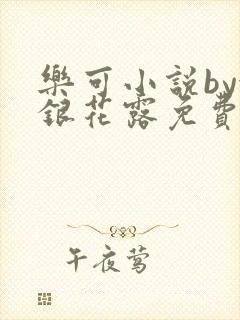 樂可小說by
銀花露免費
午夜莺